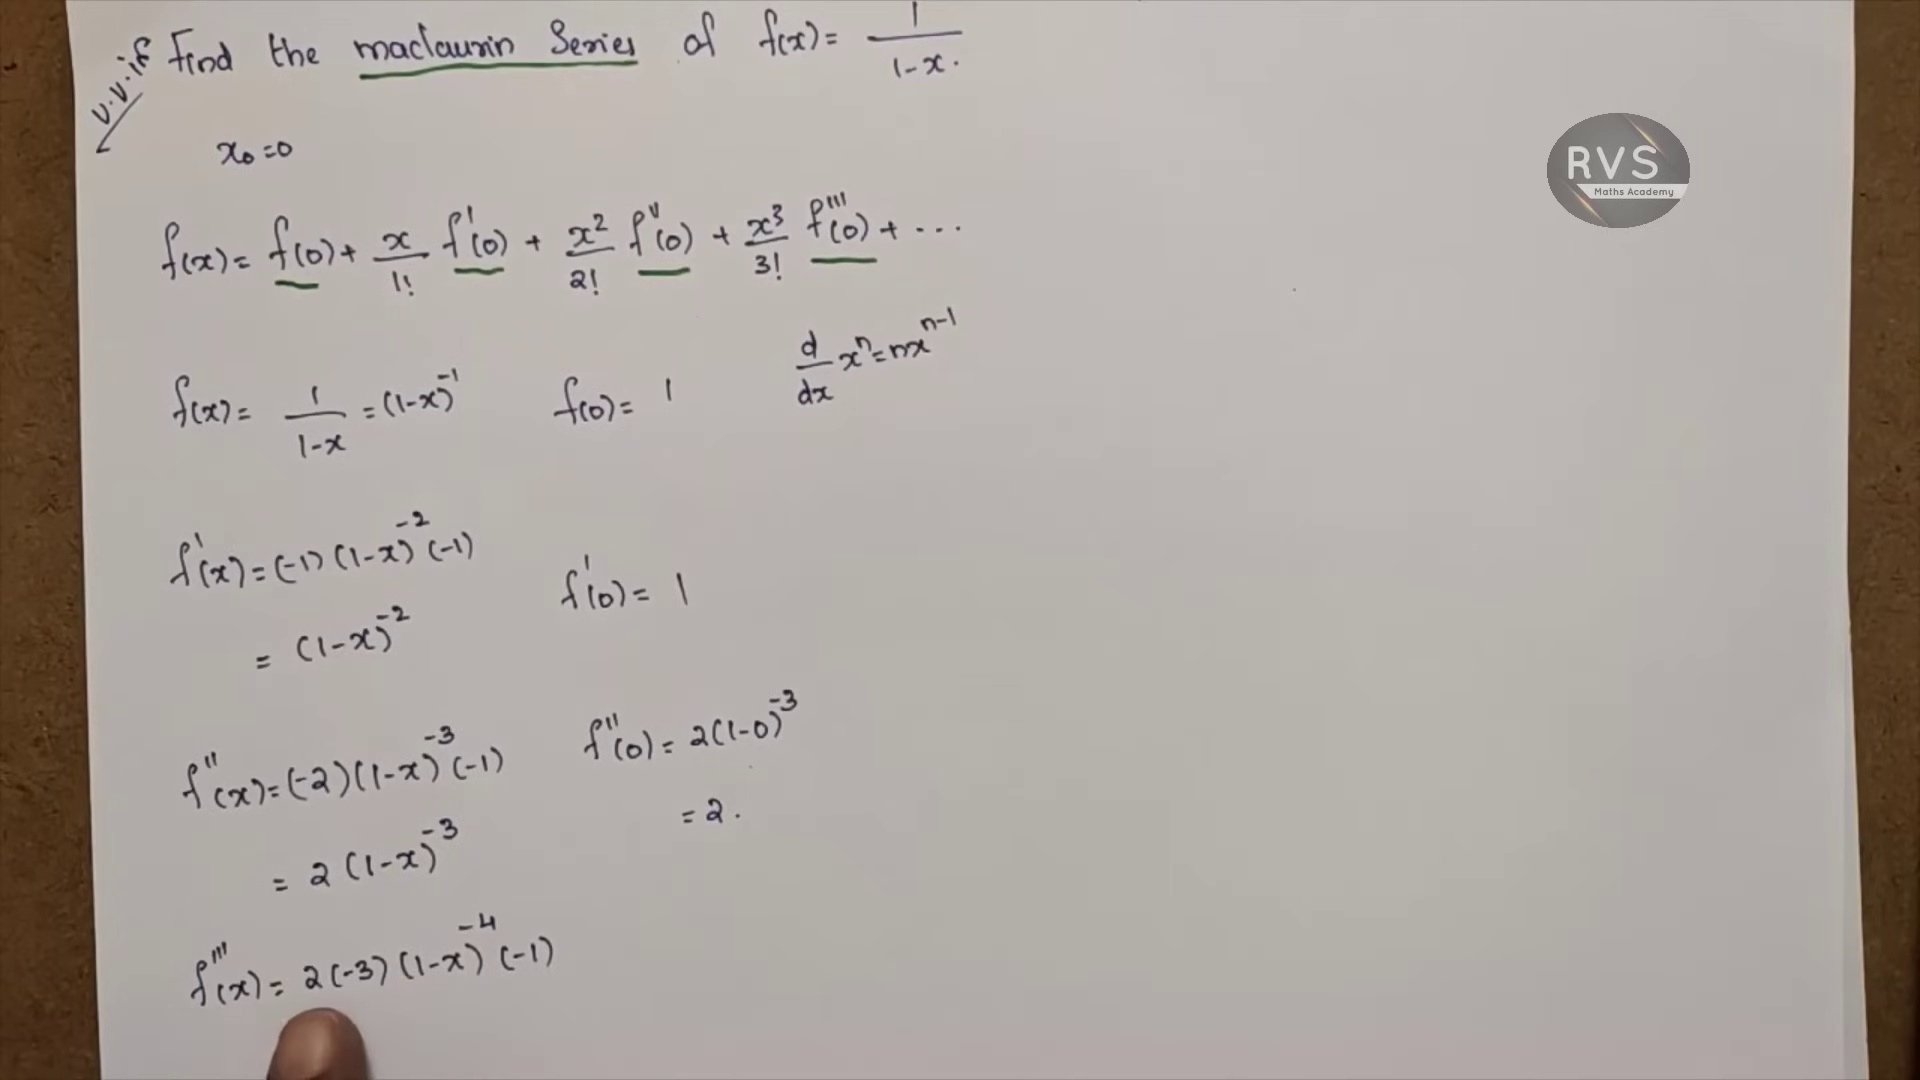 v.v.if Find the maclaurin Series of f(x) = 1/(1-x).
RVS
Maths Academy
x₀ = 0
f(x) = f(0) + x/1! f'(0) + x²/2! f''(0) + x³/3! f'''(0) + ...
f(x) = 1/(1-x) = (1-x)⁻¹ f(0) = 1 d/dx xⁿ = nxⁿ⁻¹
f'(x) = (-1)(1-x)⁻²(-1) f'(0) = 1
= (1-x)⁻²
f''(x) = (-2)(1-x)⁻³(-1) f''(0) = 2(1-0)⁻³
= 2(1-x)⁻³ = 2.
f'''(x) = 2(-3)(1-x)⁻⁴(-1)